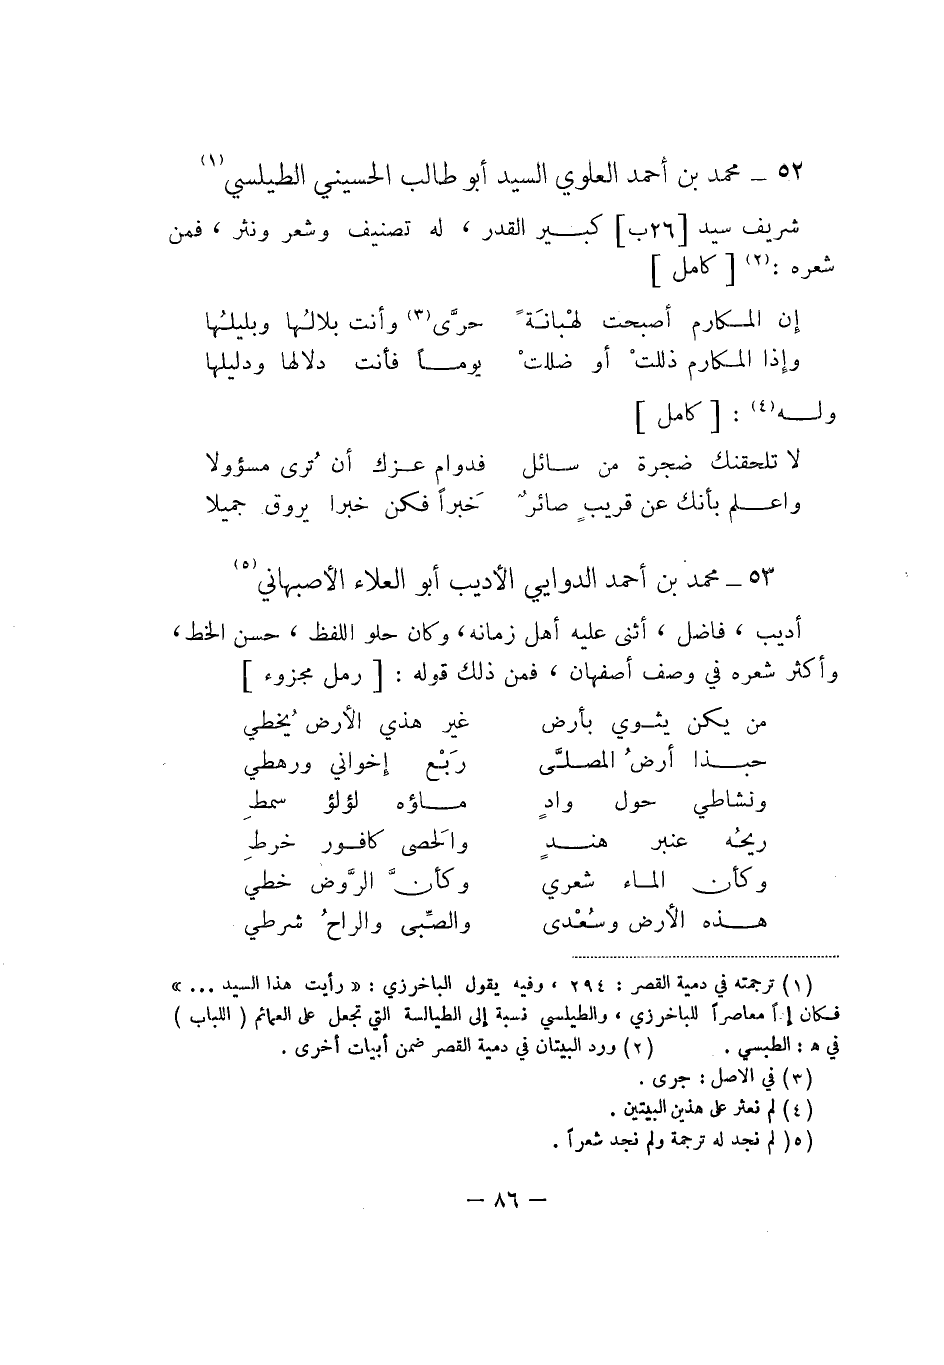 ٥٢ – محمد بن أحمد العلوي السيد أبو طالب الحسيني الطيلسي (١)
شريف سيد [٢٦ب] كبير القدر ، له تصنيف وشعر ونثر ، فمن
شعره :(٢) [ كامل ]
إن المكارم أصبحت لهبانةً حرَّى(٣) وأنت بلالها وبليلها
وإذا المكارم ذللتْ أو ضللتْ يوماً فأنت دلالها ودليلها
وله(٤) : [ كامل ]
لا تلحقنك ضجرة من سائل فدوام عزك أن تُرى مسؤولا
واعلم بأنك عن قريبٍ صائرٌ خَبراً فكن خبرا يروق جميلا
٥٣ – محمد بن أحمد الدوايي الأديب أبو العلاء الأصبهاني(٥)
أديب ، فاضل ، أثنى عليه أهل زمانه، وكان حلو اللفظ ، حسن الخط،
وأكثر شعره في وصف أصفهان ، فمن ذلك قوله : [ رمل مجزوء ]
من يكن يثوي بأرض غير هذي الأرض يُخطي
حبذا أرضُ المصلَّى رَبْع إخواني ورهطي
ونشاطي حول وادٍ ماؤه لؤلؤ سمطِ
ريحُه عنبر هندٍ والحَصى كافور خرطِ
وكأن الماء شعري وكأنَّ الرَّوض خطي
هذه الأرض وسُعْدى والصِّبى والراحُ شرطي
(١) ترجمته في دمية القصر : ٢٩٤ ، وفيه يقول الباخرزي : « رأيت هذا السيد ... »
فكان إذاً معاصراً للباخرزي ، والطيلسي نسبة إلى الطيالسة التي تجعل على العمائم ( اللباب )
في ه : الطبسي . (٢) ورد البيتان في دمية القصر ضمن أبيات أخرى .
(٣) في الاصل : جرى .
(٤) لم نعثر على هذين البيتين .
(٥) لم نجد له ترجمة ولم نجد شعراً .
– ٨٦ –